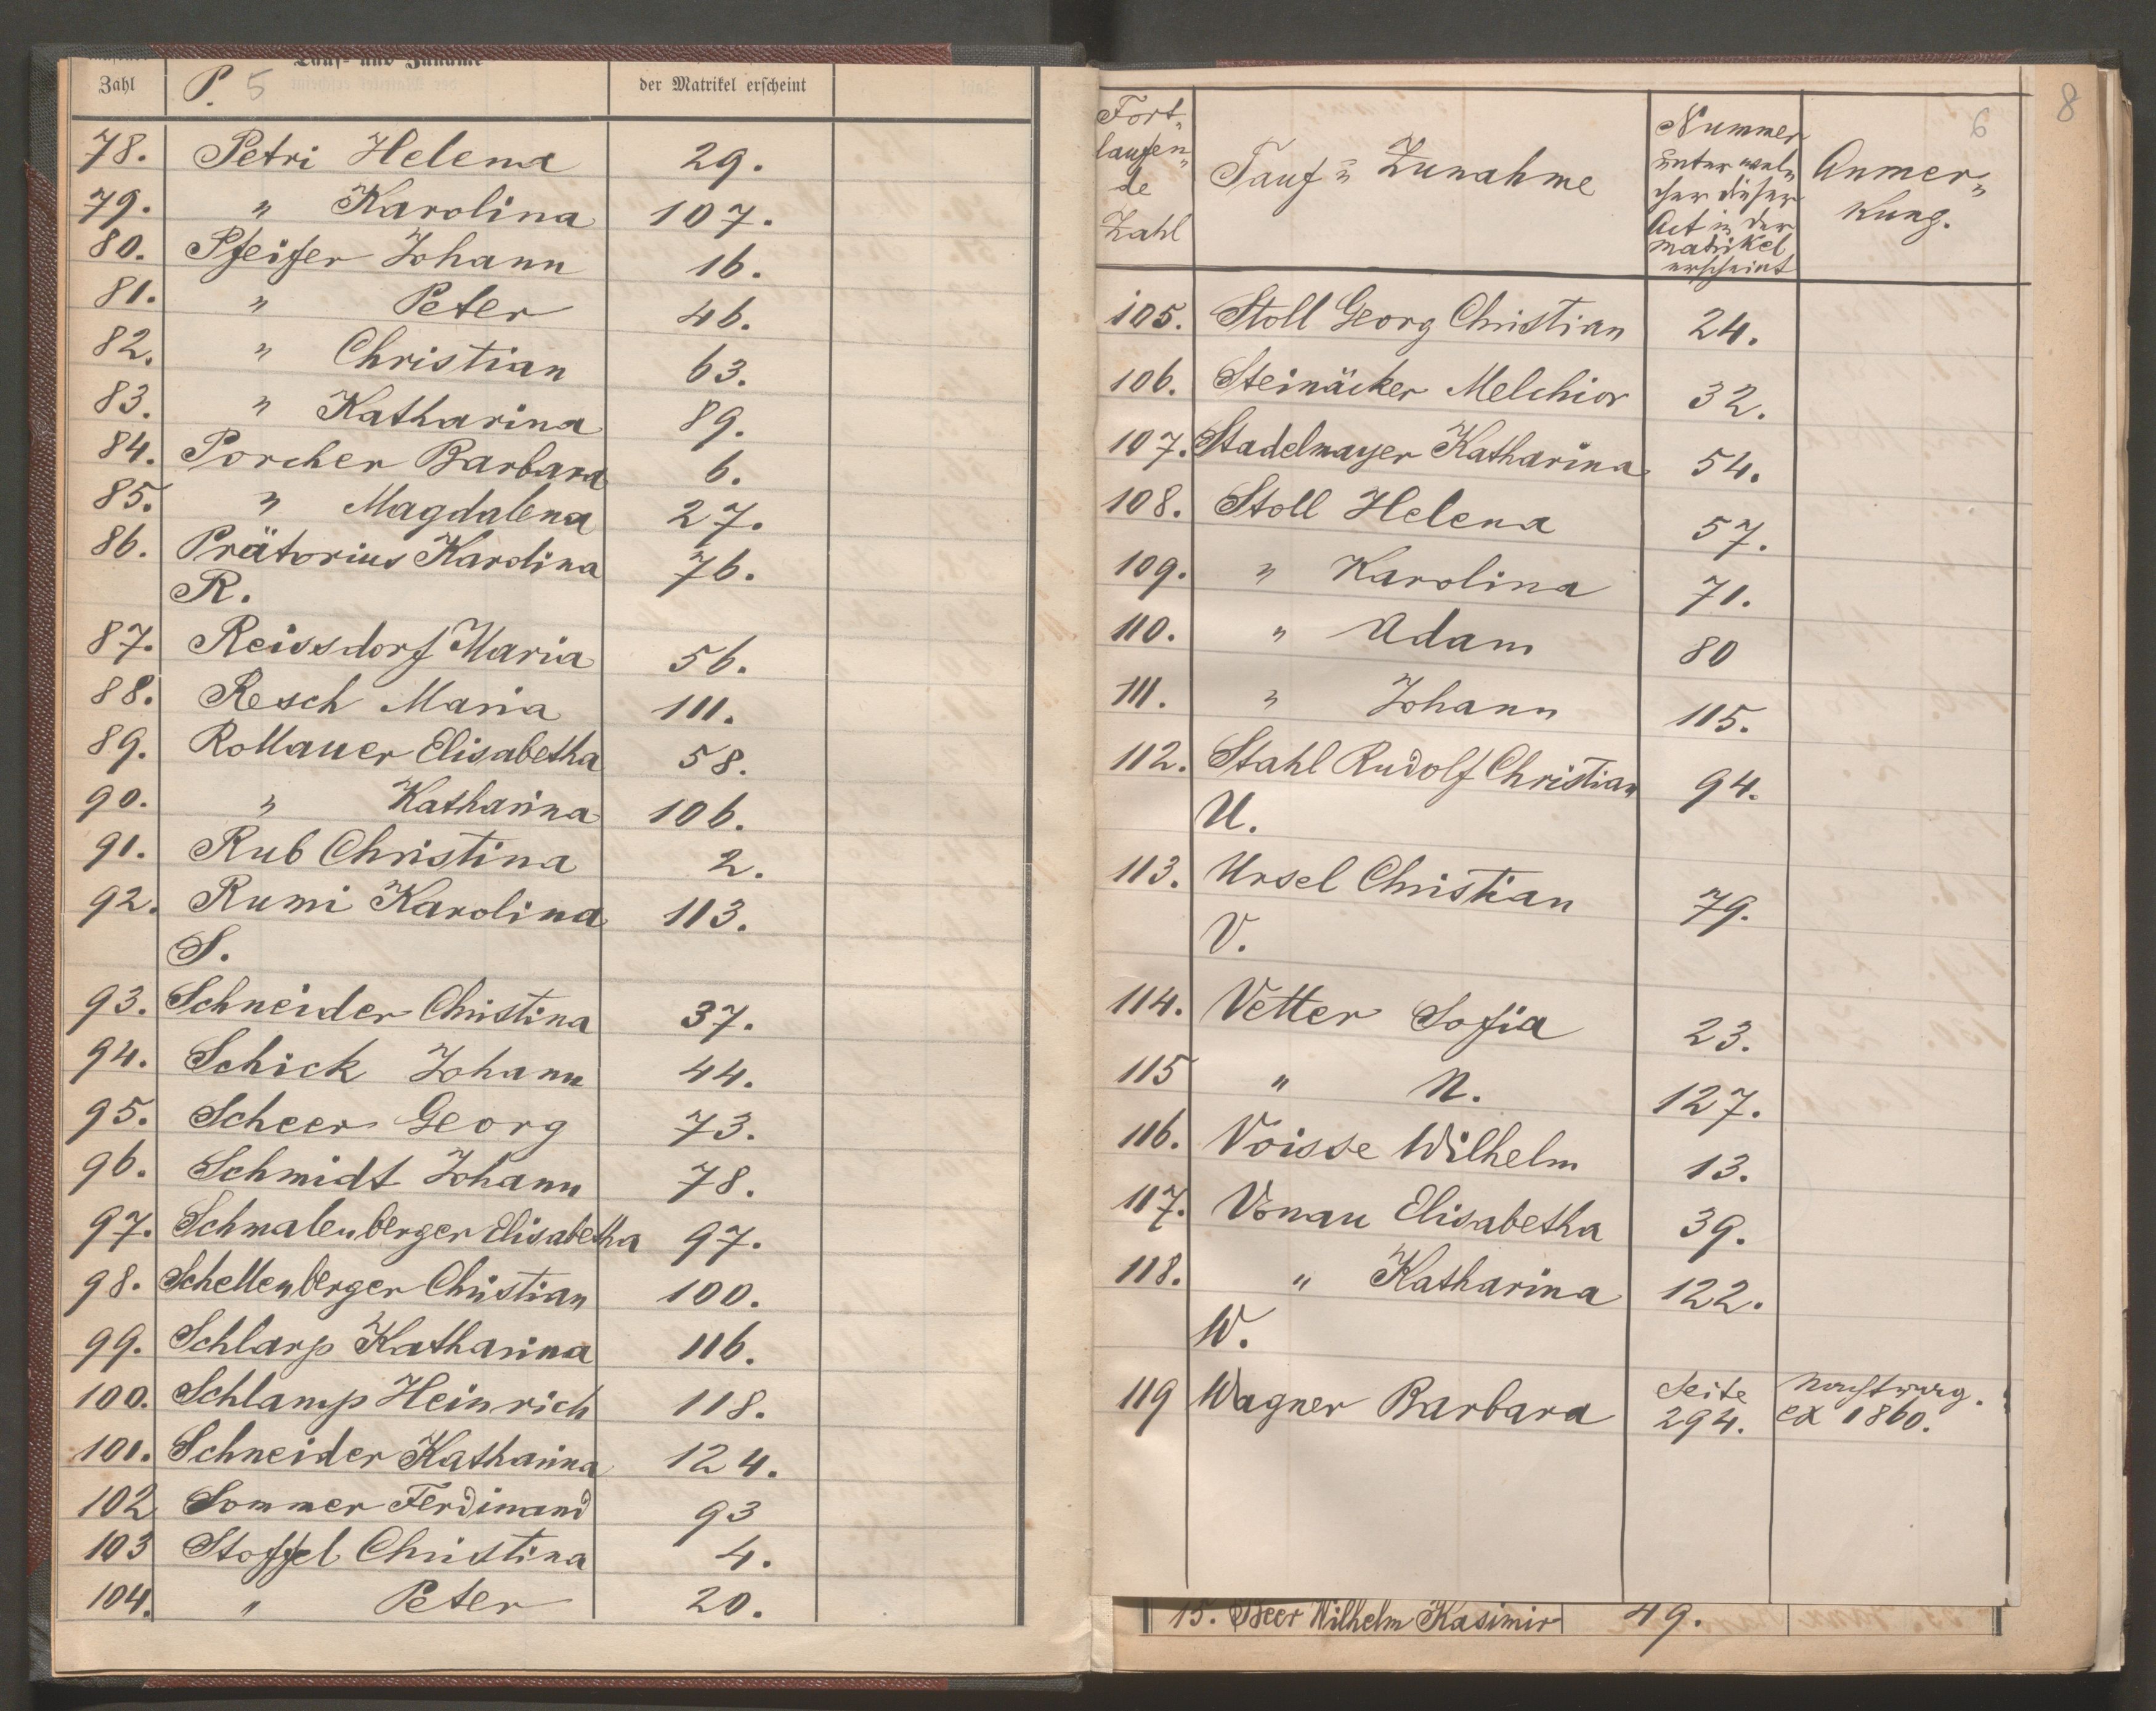 Tauf- und Zuname
Zahl P. 5 der Matrikel erscheint
78. Petri Helena 29.
79. " Karolina 107.
80. Pfeifer Johann 16.
81. " Peter 46.
82. " Christian 63.
83. " Katharina 89.
84. Porcher Barbara 6.
85. " Magdalena 27.
86. Prätorius Karolina 76.
R.
87. Reissdorf Maria 56.
88. Resch Maria 111.
89. Rollauer Elisabetha 58.
90. " Katharina 106.
91. Rub Christina 2.
92. Rumi Karolina 113.
S.
93. Schneider Christina 37.
94. Schick Johann 44.
95. Scheer Georg 73.
96. Schmidt Johann 78.
97. Schmalenberger Elisabetha 97.
98. Schellenberger Christian 100.
99. Schlarp Katharina 116.
100. Schlamp Heinrich 118.
101. Schneider Katharina 124.
102 Sommer Ferdinand 93
103 Stoffel Christina 4.
104. " Peter 20.
6 8
Fort„
laufen„
de
Zahl
Tauf u Zunahme
Nummer
unter wel„
cher dieser
Act in der
matrikel
erscheint
Anmer„
kung.
105. Stoll Georg Christian 24.
106. Steinäcker Melchior 32.
107. Stadelmayer Katharina 54.
108. Stoll Helena 57.
109. " Karolina 71.
110. " Adam 80
111. " Johann 115.
112. Stahl Rudolf Christian 94.
U.
113. Ursel Christian 79.
V.
114. Vetter Sofia 23.
115 " N. 127.
116. Voisse Wilhelm 13.
117. Vonau Elisabetha 39.
118. " Katharina 122.
W.
119 Wagner Barbara Seite 294. ex 1860.
15. Beer Wilhelm Kasimir 49.